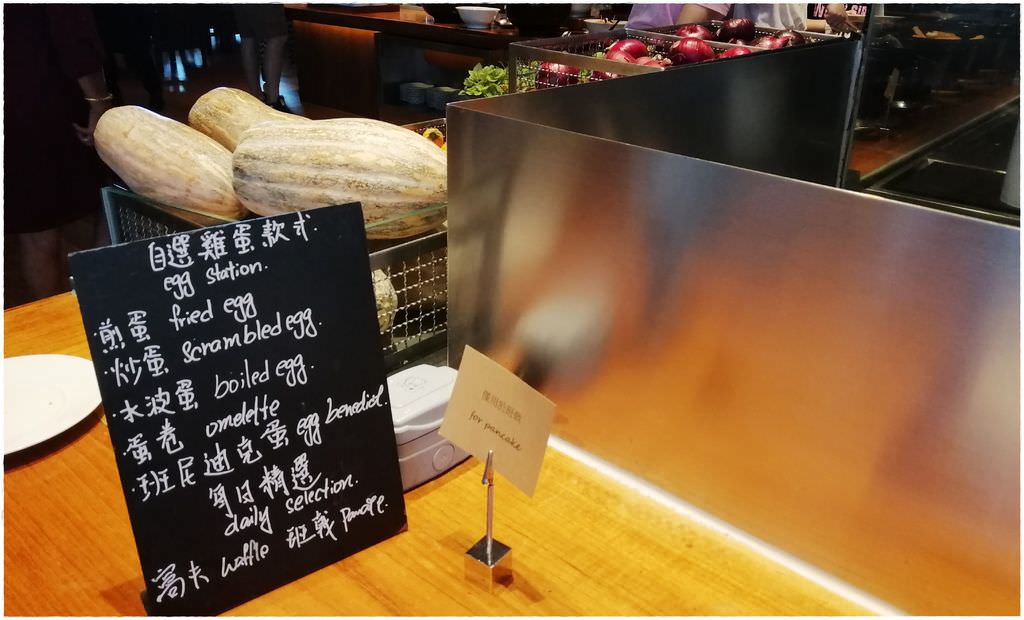 自選雞蛋款式.
egg station.
·煎蛋 fried egg
·炒蛋 scrambled egg.
·水波蛋 boiled egg.
·蛋卷 omelette
·班尼迪克蛋 egg benedict.
每日精選
daily selection.
窩夫 waffle 班戟 pancake.
for pancake